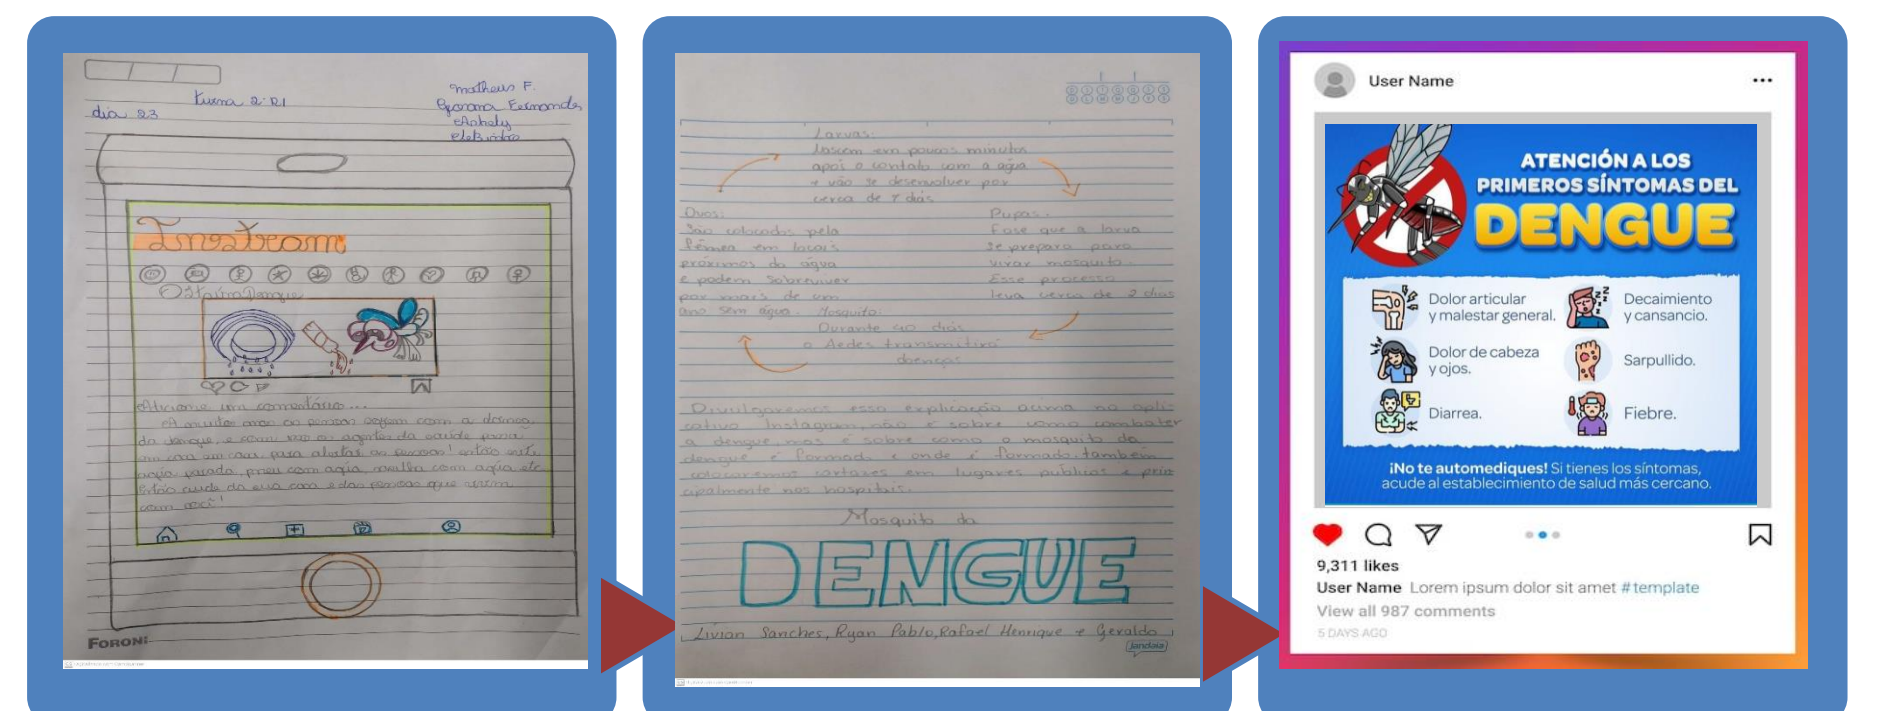 turma 2: D1
matheus F.
dia 23
Fernandes
Instram
Dengue
comentário...
da dengue, e com isso os agentes da saúde passa
em casa em casa, para alertar as pessoas! evitar
água parada, pneu com água, com água, etc
cuide da sua casa e das pessoas que
com você!
FORONI
Larvas:
Nascem em poucos minutos
apoi o contato com a água
e vão se desenvolver por
cerca de 7 dias
Ovos:
São colocados pela
fêmea em locais
próximos da água
e podem sobreviver
por mais de um
ano sem água.
Pupas:
Fase que a larva
se prepara para
virar mosquito.
Esse processo
leva cerca de 2 dias
Mosquito:
Durante 40 dias
o Aedes transmitirá
doenças
Divulgaremos essa explicação acima no apli-
cativo Instagram, não é sobre como combater
a dengue, mas é sobre como o mosquito da
dengue é formado e onde é formado, também
colocaremos cartazes em lugares públicos e prin
cipalmente nos hospitais.
Mosquito da
DENGUE
Livian Sanches, Ryan Pablo, Rafael Henrique e Geraldo
jandaia
User Name
ATENCIÓN A LOS
PRIMEROS SÍNTOMAS DEL
DENGUE
Dolor articular
y malestar general.
Decaimiento
y cansancio.
Dolor de cabeza
y ojos.
Sarpullido.
Diarrea.
Fiebre.
¡No te automediques! Si tienes los síntomas,
acude al establecimiento de salud más cercano.
9,311 likes
User Name Lorem ipsum dolor sit amet #template
View all 987 comments
5 DAYS AGO